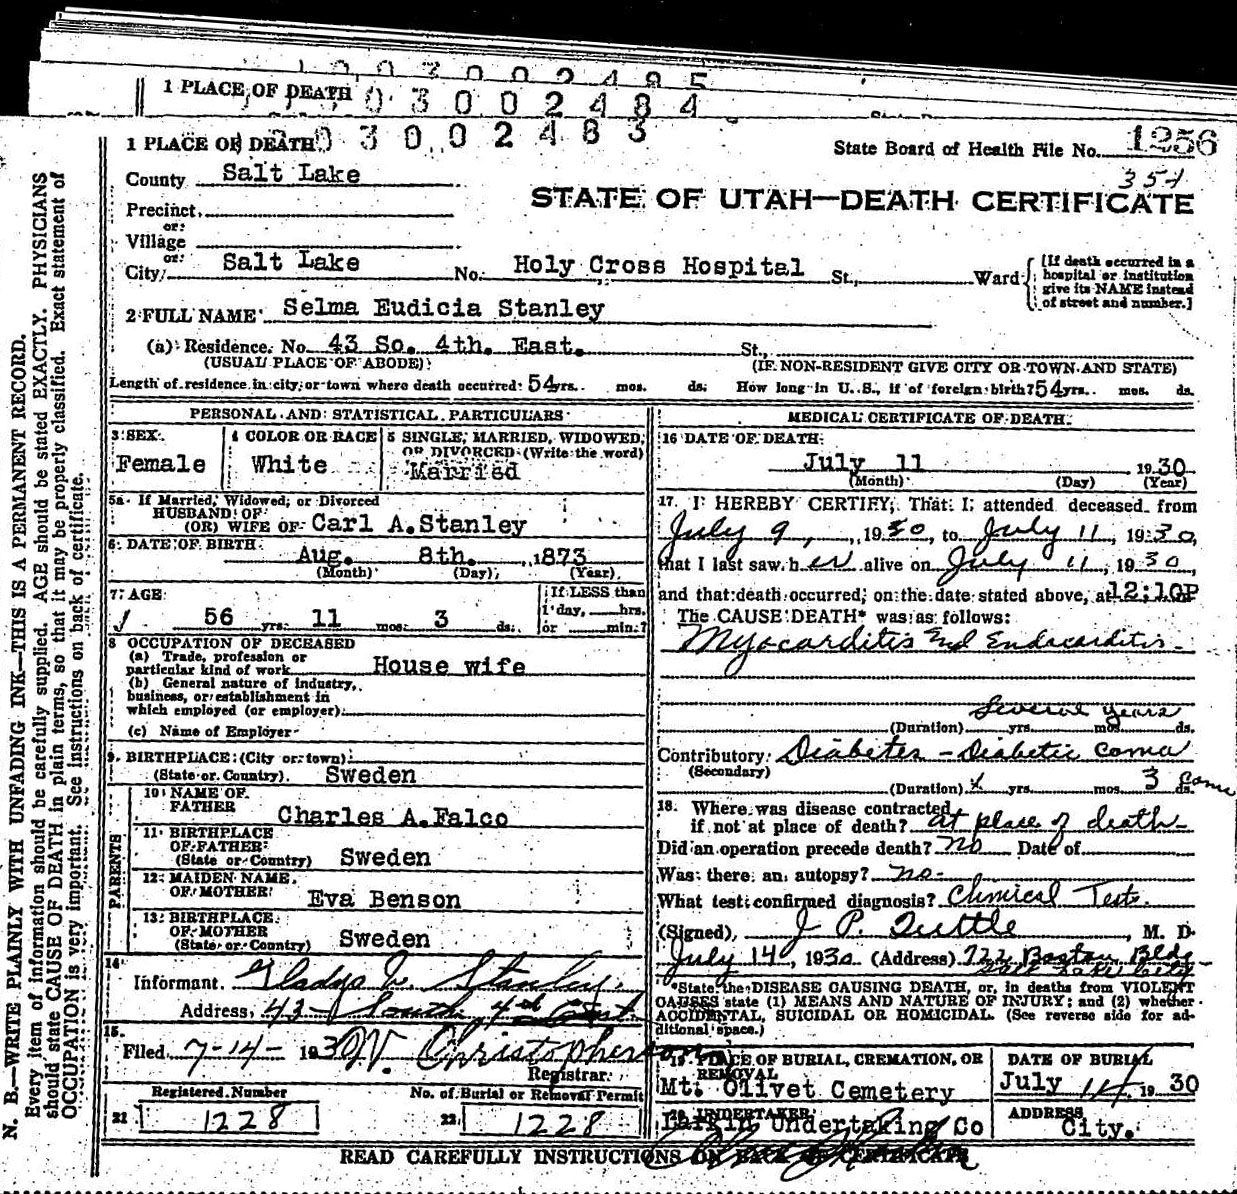 1 PLACE OF DEATH
1 PLACE OF DEATH
State Board of Health File No. 1256
354
County Salt Lake
STATE OF UTAH—DEATH CERTIFICATE
Precinct
or
Village
or
City Salt Lake No. Holy Cross Hospital St., Ward
[If death occurred in a hospital or institution give its NAME instead of street and number.]
2 FULL NAME Selma Eudicia Stanley
(a) Residence. No. 43 So. 4th. East. St.,
(USUAL PLACE OF ABODE) (IF NON-RESIDENT GIVE CITY OR TOWN AND STATE)
Length of residence in city or town where death occurred 54 yrs. mos. ds. How long in U. S., if of foreign birth? 54 yrs. mos. ds.
PERSONAL AND STATISTICAL PARTICULARS
3 SEX Female
4 COLOR OR RACE White
5 SINGLE, MARRIED, WIDOWED, OR DIVORCED (Write the word) Married
5a If Married, Widowed, or Divorced
HUSBAND OF
(OR) WIFE OF Carl A. Stanley
6. DATE OF BIRTH
Aug. 8th. 1873
(Month) (Day) (Year)
7. AGE
56 yrs. 11 mos. 3 ds.
If LESS than
1 day, hrs.
or min.?
8 OCCUPATION OF DECEASED
(a) Trade, profession or
particular kind of work House wife
(b) General nature of industry,
business, or establishment in
which employed (or employer)
(c) Name of Employer
9. BIRTHPLACE (City or town)
(State or Country) Sweden
PARENTS
10 NAME OF
FATHER Charles A. Falco
11 BIRTHPLACE
OF FATHER
(State or Country) Sweden
12 MAIDEN NAME
OF MOTHER Eva Benson
13 BIRTHPLACE
OF MOTHER
(State or Country) Sweden
14
Informant. Gladys Stanley
Address, 43 South 4th East
15.
Filed 7-14- 1930 Christopherson
Registrar.
Registered Number
21 1228
No. of Burial or Removal Permit
22 1228
MEDICAL CERTIFICATE OF DEATH
16 DATE OF DEATH
July 11 1930
(Month) (Day) (Year)
17. I HEREBY CERTIFY, That I attended deceased from
July 9, 1930, to July 11, 1930,
that I last saw her alive on July 11, 1930,
and that death occurred, on the date stated above, at 12:10P
The CAUSE DEATH* was as follows:
Myocarditis and Endocarditis.
Several years
(Duration) yrs. mos. ds.
Contributory Diabetes - Diabetic coma
(Secondary)
(Duration) x yrs. mos. 3 ds. Coma
18. Where was disease contracted
if not at place of death? at place of death
Did an operation precede death? no Date of
Was there an autopsy? no.
What test confirmed diagnosis? Chemical Tests.
(Signed) J. P. Tuttle, M. D.
July 14, 1930 (Address) 722 Boston Bldg
Salt Lake City
*State the DISEASE CAUSING DEATH, or, in deaths from VIOLENT
CAUSES state (1) MEANS AND NATURE OF INJURY; and (2) whether
ACCIDENTAL, SUICIDAL OR HOMICIDAL. (See reverse side for ad-
ditional space.)
19 PLACE OF BURIAL, CREMATION, OR
REMOVAL
Mt. Olivet Cemetery
DATE OF BURIAL
July 14 1930
20. UNDERTAKER
Larkin Undertaking Co
ADDRESS
City.
READ CAREFULLY INSTRUCTIONS ON BACK OF CERTIFICATE
N. B.—WRITE PLAINLY WITH UNFADING INK—THIS IS A PERMANENT RECORD.
Every item of information should be carefully supplied. AGE should be stated EXACTLY. PHYSICIANS
should state CAUSE OF DEATH in plain terms, so that it may be properly classified. Exact statement of
OCCUPATION is very important. See instructions on back of certificate.